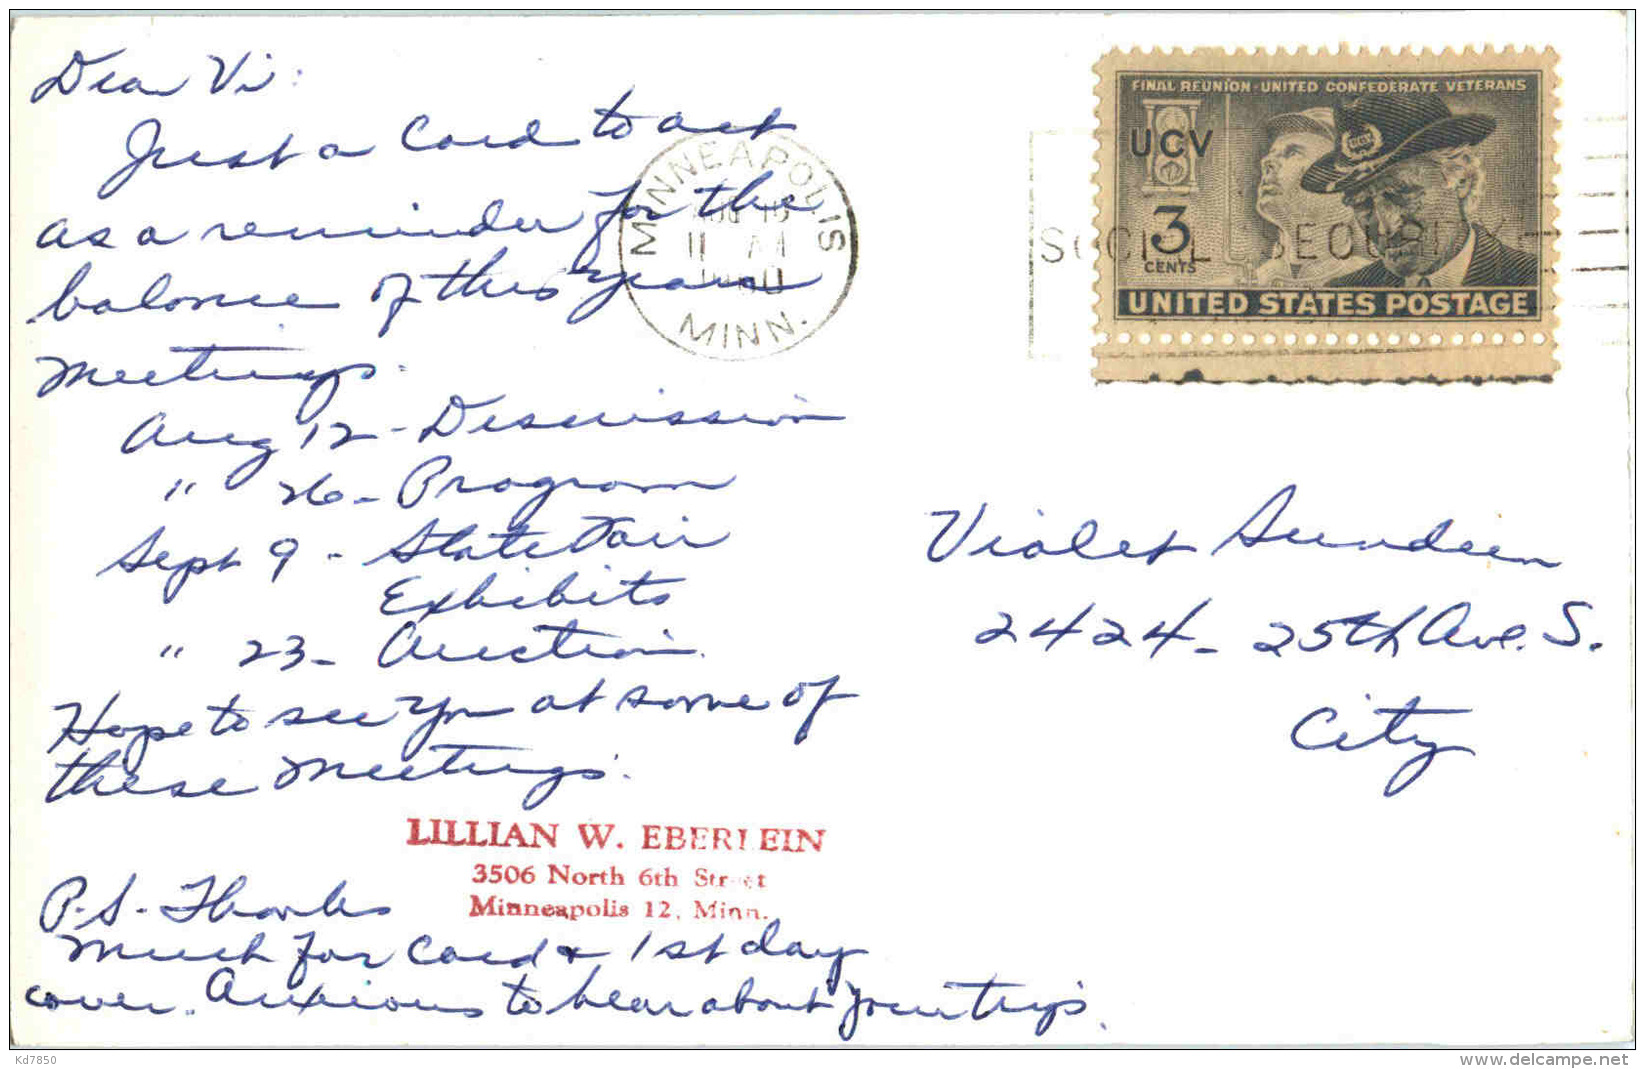 Dear Vi:
Just a Card to act
as a reminder for the
balance of this years
meetings.
Aug 12 - Discussion
" 26 - Program
Sept 9 - State Fair
Exhibits
" 23 - Auction.
Hope to see you at some of
these meetings.
LILLIAN W. EBERLEIN
3506 North 6th Street
Minneapolis 12, Minn.
P.S. - Thanks
much for card & 1st day
cover. Anxious to hear about your trips.
MINNEAPOLIS
11 AM
MINN.
FINAL REUNION · UNITED CONFEDERATE VETERANS
UCV
3
CENTS
UNITED STATES POSTAGE
SOCIAL SECURITY
Violet Sundeen
2424 - 25th Ave. S.
City
Kd7850
www.delcampe.net